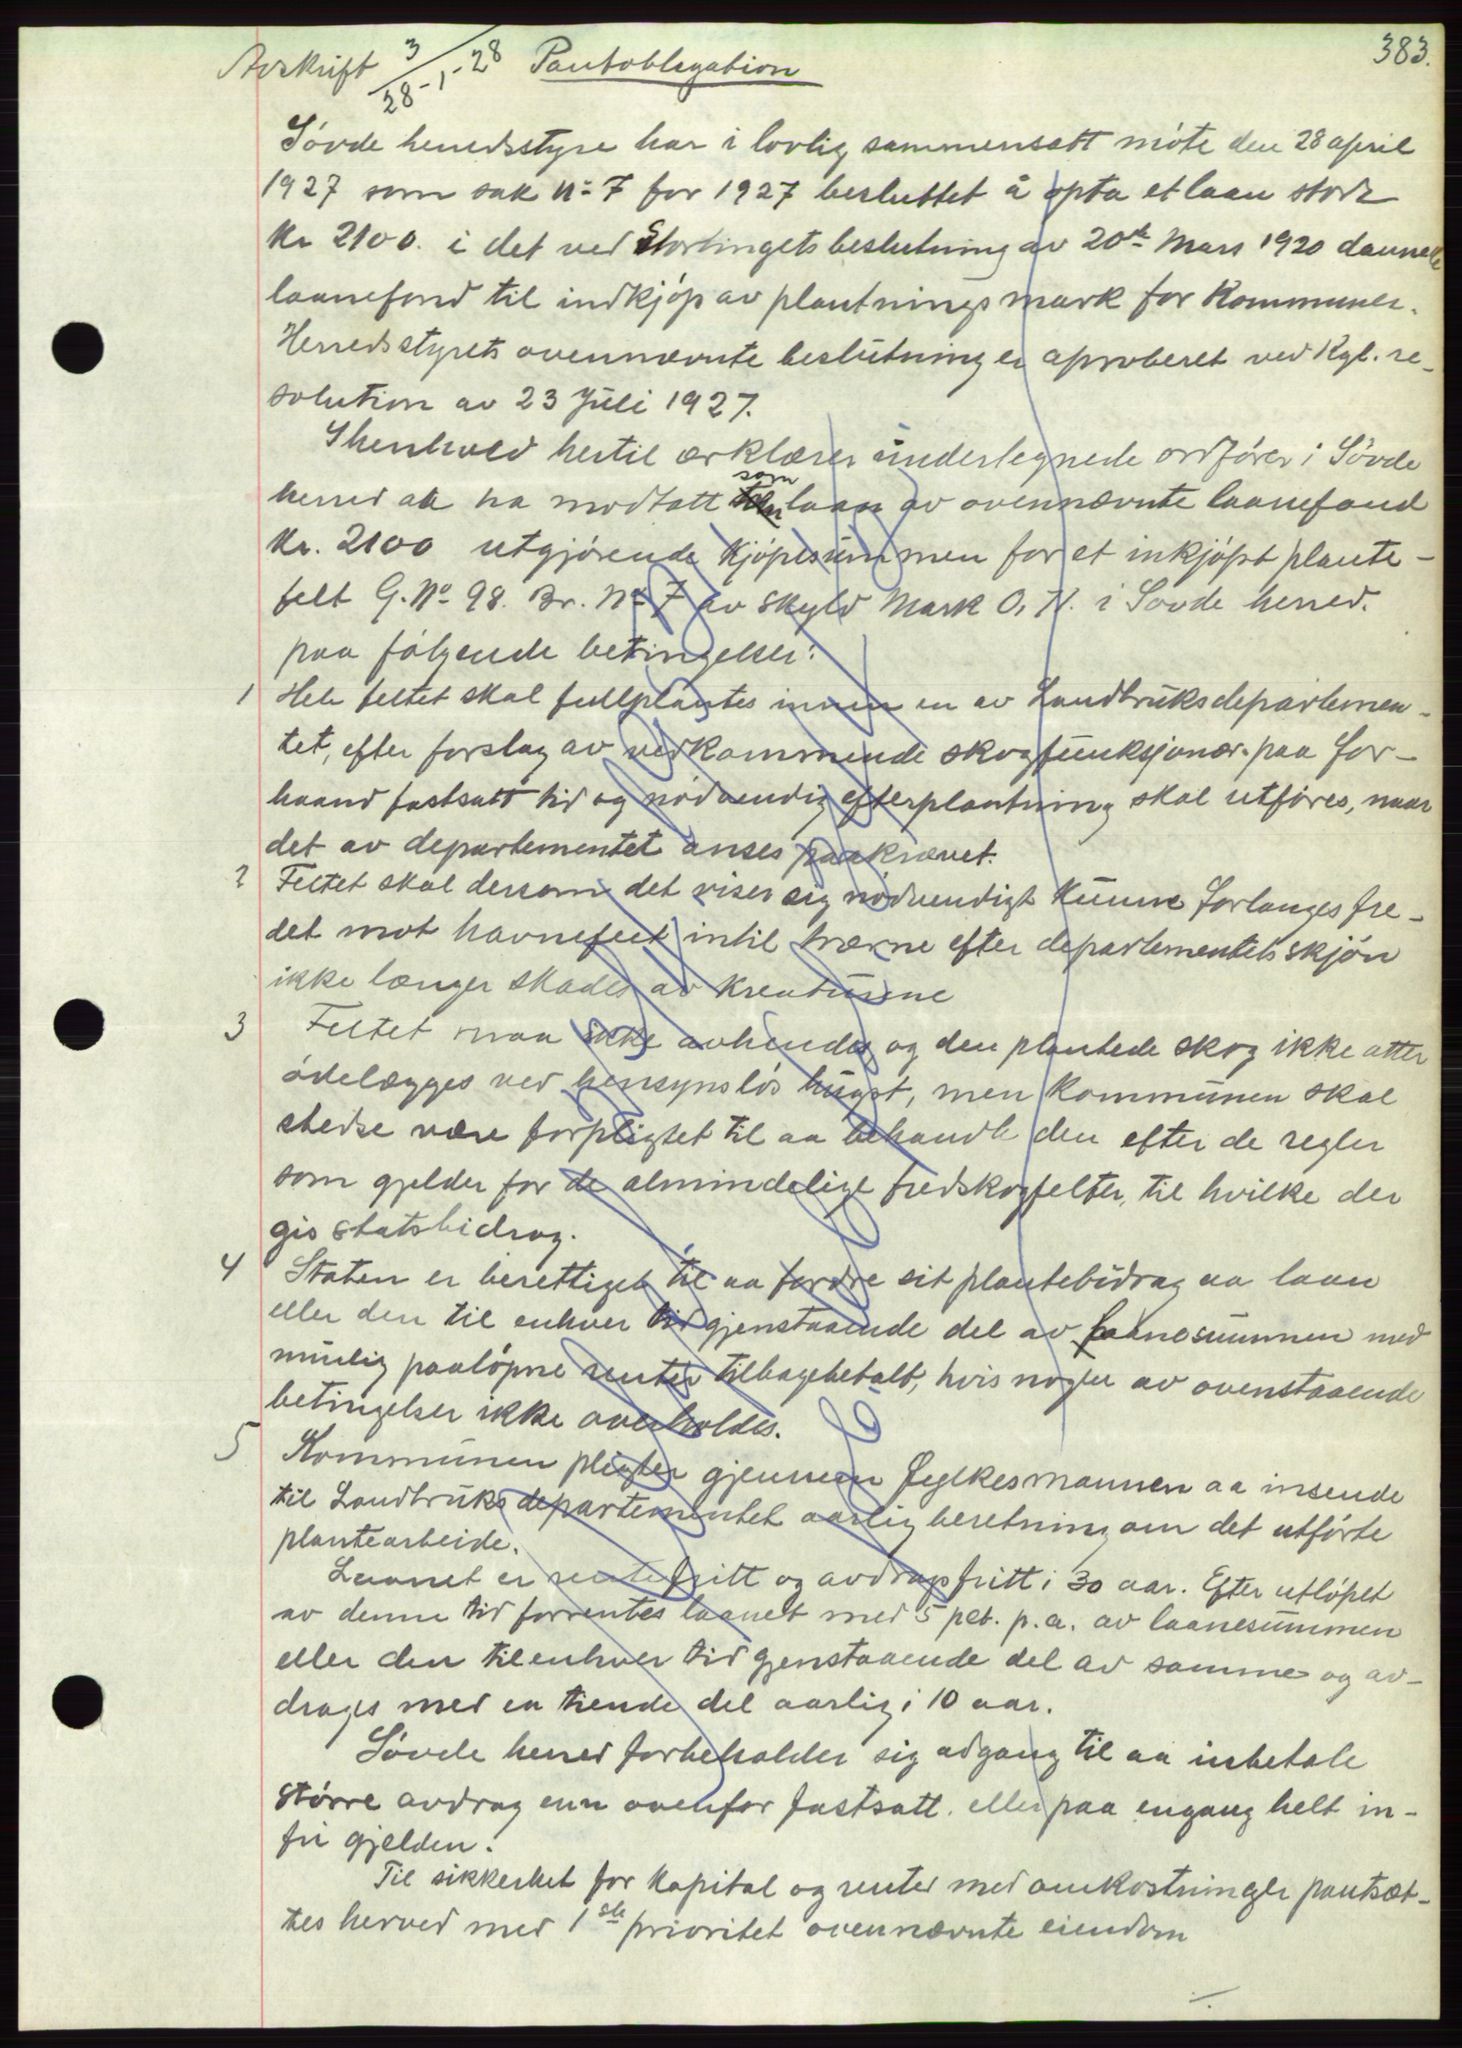 383.
Avskrift 3/28-1-28 Pantoblegation
Søvde herredsstyre har i lovlig sammensatt møte den 28 april
1927 som sak No 7 for 1927 besluttet å opta et laan stort
kr 2100. i det ved Stortingets beslutning av 20de Mars 1920 dannede
laanefond til indkjøp av plantningsmark for kommuner.
Herredsstyrets ovennævnte beslutning er aproberet ved Kgl. re-
solution av 23 Juli 1927.
I henhold hertil erklærer undertegnede ordfører i Søvde
herred at ha modtatt som laan av ovennævnte laanefond
kr. 2100 utgjørende kjøpesummen for et inkjøpt plante-
felt G. No 98. Br. No 7 av skyld Mark 0, N. i Søvde herred.
paa følgende betingelser:
1 Hele feltet skal fullplantes innen en av Landbruksdepartemen-
tet, efter forslag av vedkommende skogfunksjonær paa for-
haand fastsatt tid og nødvendig efterplantning skal utføres, naar
det av departementet anses paakrævet.
2 Feltet skal dersom det viser sig nødvendigt kunne forlanges fre-
det mot havnefeet intil trærne efter departementets skjøn
ikke længer skades av kreaturene
3 Feltet maa ikke avhendes og den plantede skog ikke atter
ødelægges ved hensynsløs hugst, men kommunen skal
stedse være forpligtet til aa behandle den efter de regler
som gjelder for de almindelige fredskogfelter, til hvilke der
gis statsbidrag.
4 Staten er berettiget til aa fordre sit plantebidrag aa laan
eller den til enhver tid gjenstaaende del av laanesummen med
mulig paaløpne renter tilbagebetalt, hvis nogen av ovenstaaende
betingelser ikke overholdes.
5 Kommunen pligter gjennem Fylkesmannen aa insende
til Landbruksdepartementet aarlig beretning om det utførte
plantearbeide.
Laanet er rentefritt og avdragsfritt i 30 aar. Efter utløpet
av denne tid forrentes laanet med 5 pct. p.a. av laanesummen
eller den til enhver tid gjenstaaende del av samme og av-
drages med en tiende del aarlig i 10 aar.
Søvde herred forbeholder sig adgang til aa inbetale
større avdrag enn ovenfor fastsatt. eller paa engang helt in-
fri gjelden.
Til sikkerhet for kapital og renter med omkostninger pantsæt-
tes herved med 1ste prioritet ovennævnte eiendom